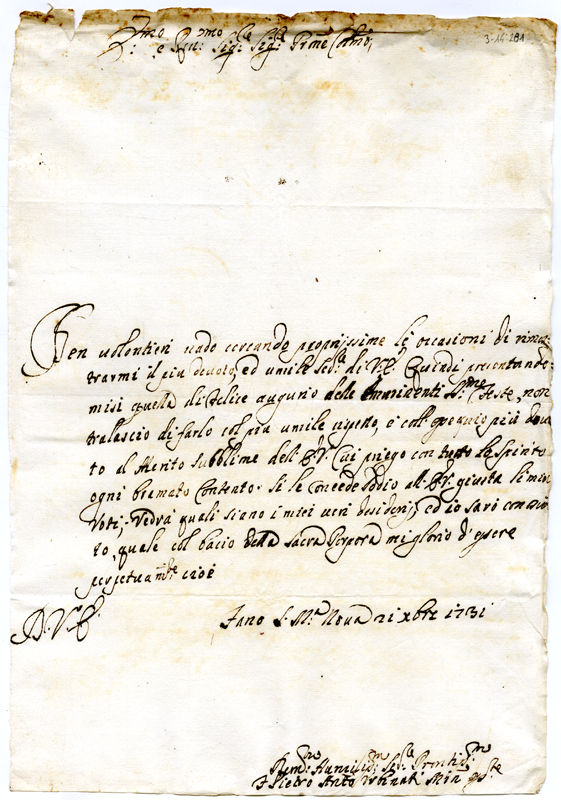 3-14-281
Emo
e Rmo: Sigre Sigre Prone Colmo,
Ben volontieri vado cercando propriissime le occasioni di dimo
strarmi il piu devoto, ed umile Serre di V. E. Quindi presentando
misi quella di felice augurio delle imminenti Sme Feste, non
tralascio di farlo col piu umile rispetto, e coll' ossequio più dovu
to al Merito subblime dell' E. V. Cui priego con tutto lo Spirito
ogni bramato contento. Si le concede Iddio all' E. V. giusta li miei
Voti, vedrà quali siano i miei veri desiderj, ed io sarò
to, quale col bacio della sacra Porpora mi glorio d' essere
perpetuamte cioè
D. V. E.
Fano S. Ma Nova 21 xbre 1731
Ummo Humilismo Servre
F. Pietro Anto Min Osste